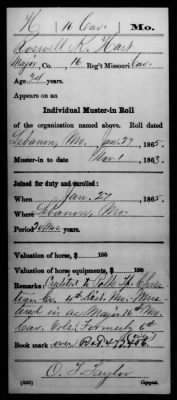 H | 16 Cav. | Mo.
Roswell K. Hart
Major, Co. 16 Reg't Missouri Cav.
Age 34 years.
Appears on an
Individual Muster-in Roll
of the organization named above. Roll dated
Lebanon, Mo. Jan. 27, 1865.
Muster-in to date Nov. 1, 1863.
Joined for duty and enrolled:
When Jan. 27, 1865.
Where Lebanon, Mo.
Period years.
Valuation of horse, $ 100
Valuation of horse equipments, $ 100
Remarks: Credited to
4th Mo.
in as Major 16th Mo.
Cav. Vols. Formerly 6th
Book mark: over R&P
O. F. Taylor
Copyist.